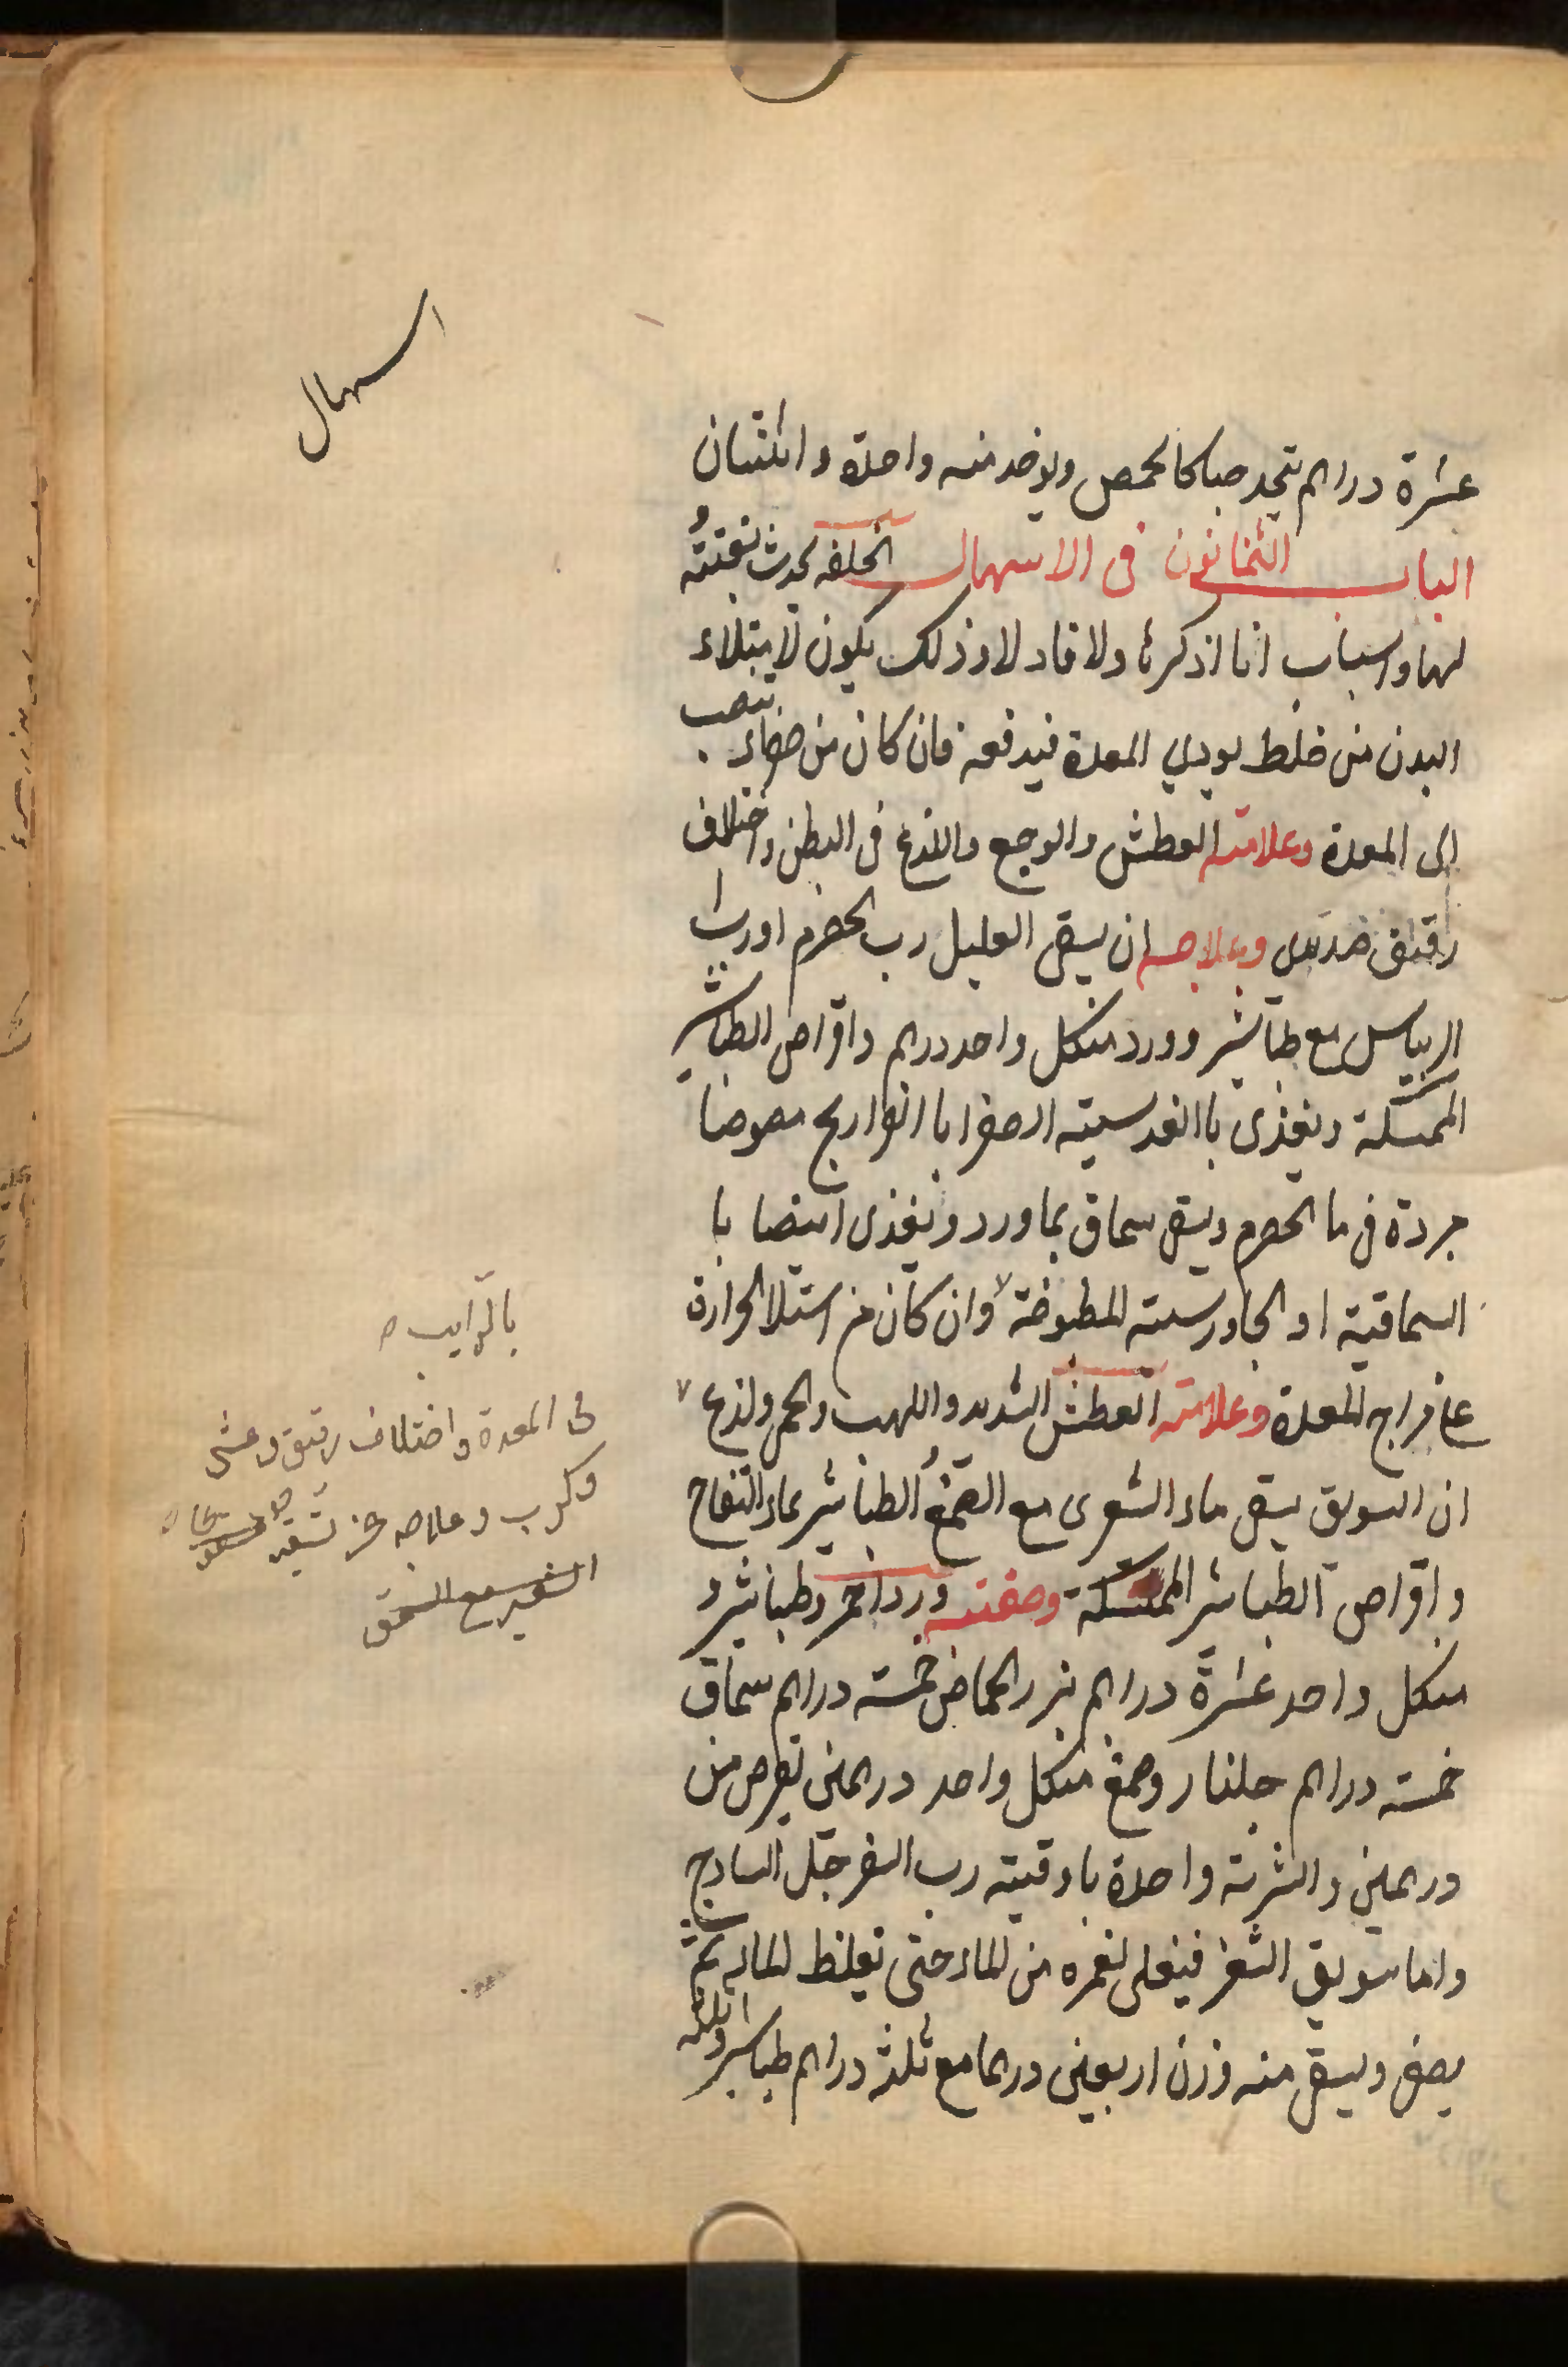 اسهال
عشرة دراهم يتخد حبا كالحمص ويوخد منه واحدة واثنتان
الباب الثمانون فى الاسهال الخلفه تحدث بغتتُه
لها واسباب انا اذكرها ولا فاد لاذ ذلك يكون لامتلاء
البدن من خلط يوذي المعدة فيدفعه فان كان من صفراء تنصب
الى المعدة وعلامته العطش والوجع واللذع فى البطن واختلاف
رقيق وعلاجه ان يسقى العليل رب الحصرم او رب
الريباس مع طباشير وورد منكل واحد درهم واقراص الطباشير
الممسكة ويغذى باالعدسية الصفرا باالفراريج مصوصا
مبردة فى ما الحصرم ويسقى سماق بماورد ويغذى ايضا با
السماقية او الجاورسية المطبوخة وان كان من استيلا الحرارة
على مزاج المعدة وعلامته العطش الشديد واللهب والحمى ولذع
ان السويق يسقى ماء الشعرى مع الصمغُ الطباشير بماء التفاح
واقراص الطباشير الممسكة وصفته ورد احمر وطباشير و
منكل واحد عشرة دراهم بزر الحماض خمسة دراهم سماق
خمسة دراهم جلنار وصمغ منكل واحد درهمين تقرص من
درهمين والشربة واحدة باوقية رب السفرجل السادج
واما سويق الشعير فيغلى بغمره من الماء حتى يغلظ الماء ثم
يصفى ويسقى منه وزن اربعين درهما مع ثلثة دراهم طباشير
بالرايب
فى المعدة واختلاف رقيق وعشى
وكرب وعلاجه
الشعير مع السحق